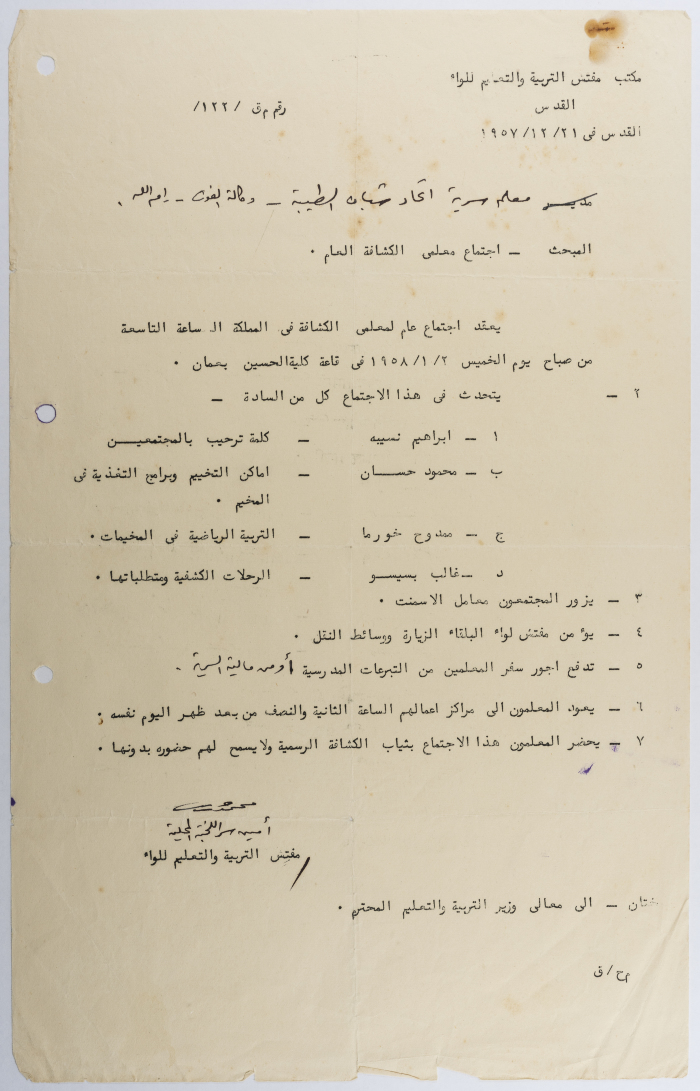 مكتب مفتش التربية والتعليم للواء
القدس
رقم م ق /١٢٢/
القدس في ١٩٥٧/١٢/٢١
معلم سرية اتحاد شباب الطيبة - وكالة الغوث - رام الله .
المبحث - اجتماع معلمي الكشافة العام .
يعقد اجتماع عام لمعلمي الكشافة في المملكة الساعة التاسعة
من صباح يوم الخميس ١٩٥٨/١/٢ في قاعة كلية الحسين بعمان .
٢ - يتحدث في هذا الاجتماع كل من السادة -
١ - ابراهيم نسيبه - كلمة ترحيب بالمجتمعين
ب - محمود حسان - اماكن التخييم وبرامج التغذية في
المخيم .
ج - ممدوح خورما - التربية الرياضية في المخيمات .
د - غالب بسيسو - الرحلات الكشفية ومتطلباتها .
٣ - يزور المجتمعون معامل الاسمنت .
٤ - يؤمن مفتش لواء البلقاء الزيارة ووسائط النقل .
٥ - تدفع اجور سفر المعلمين من التبرعات المدرسية أو من مالية السرية .
٦ - يعود المعلمون الى مراكز اعمالهم الساعة الثانية والنصف من بعد ظهر اليوم نفسه .
٧ - يحضر المعلمون هذا الاجتماع بثياب الكشافة الرسمية ولا يسمح لهم حضوره بدونها .
أمين سر اللجنة المحلية
مفتش التربية والتعليم للواء
- الى معالي وزير التربية والتعليم المحترم .
م ح / ق